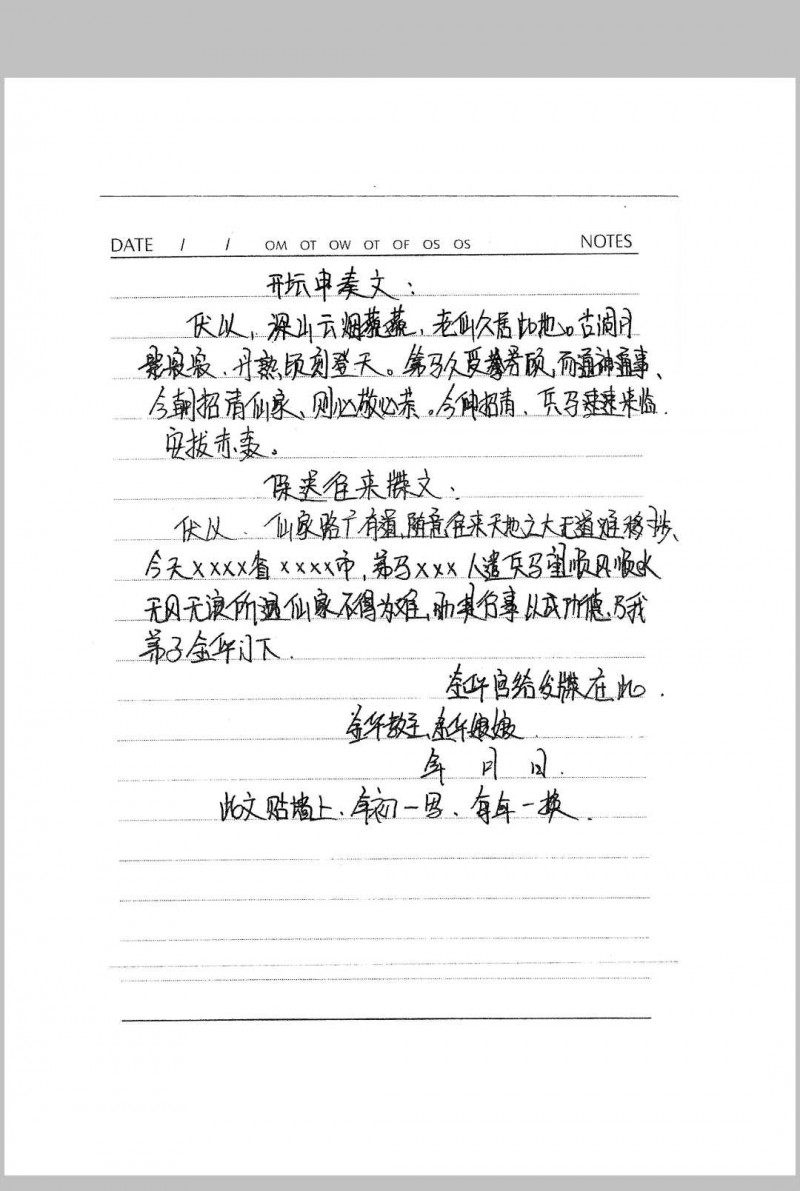 DATE / / OM OT OW OT OF OS OS NOTES
开坛申奏文：
伏以，深山云烟茫茫，老仙久居此地。古洞月
影寂寂，丹熟顷刻登天。弟马久受眷顾，而通神通事、
今朝招请仙家、则必敬必恭。今仲招请、兵马速速来临.
奏。
往来牒文：
伏以. 仙家路广有道，随意往来天地之大无道难移步、
今天xxxx省xxxx市，弟马xxx人遣兵马望顺风顺水
无风无浪所遇仙家不得为难，助其行事以成功德.乃我
弟子金华门下.
金华宫给发牒在此.
金华教主金华娘娘.
年 月 日.
此文贴墙上、年初一写、每年一换.